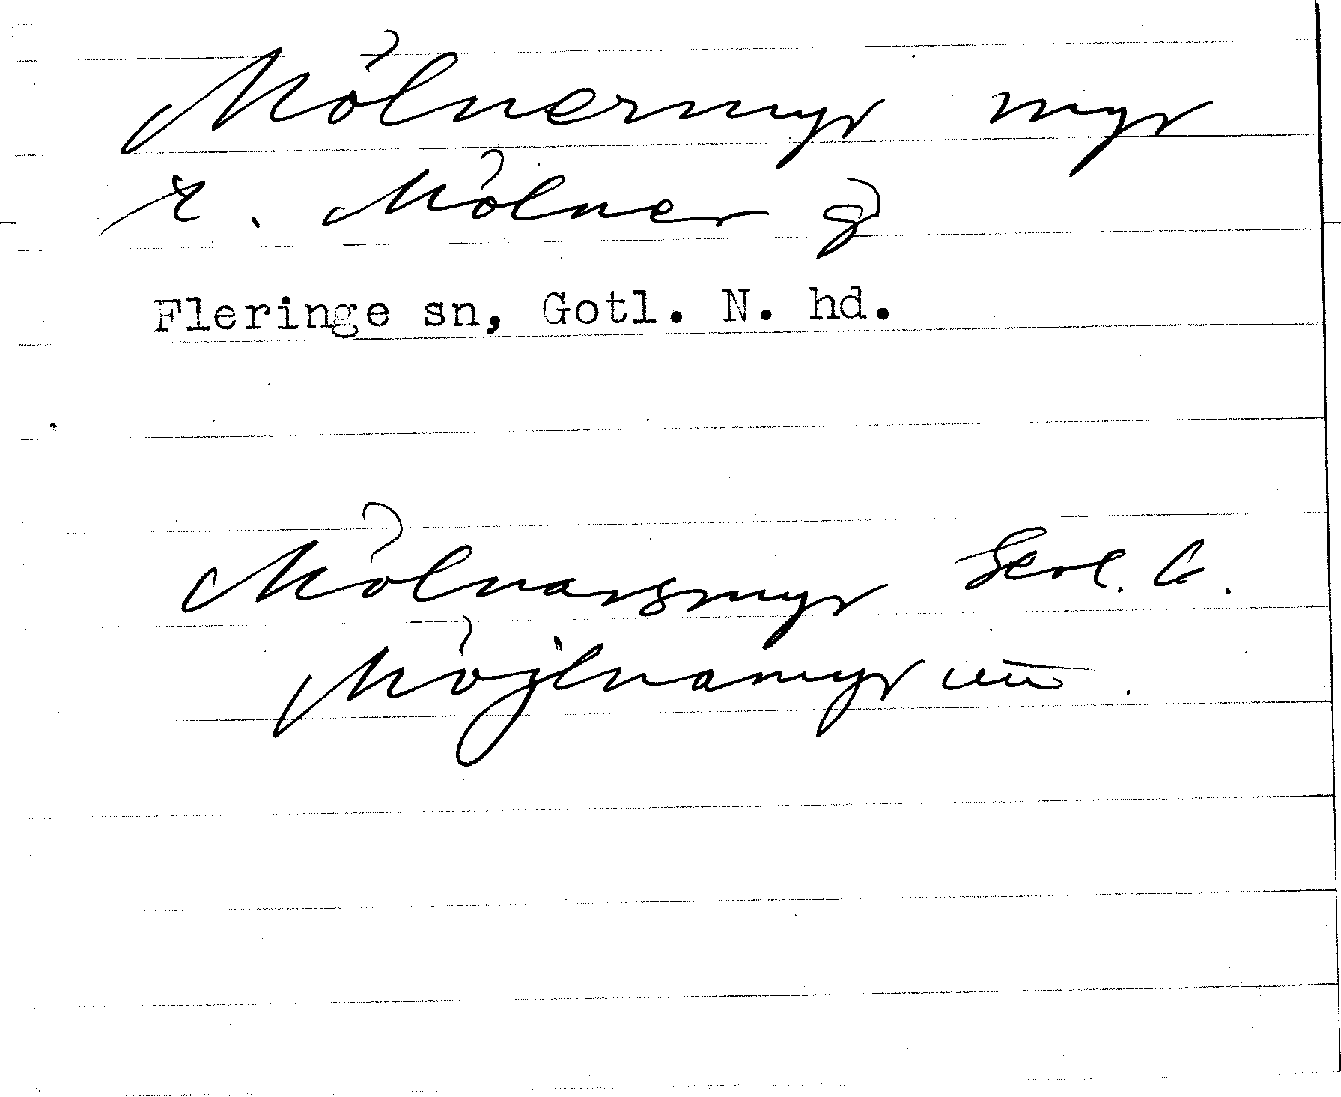 Mölnermyr myr
r. Mölner g
Fleringe sn, Gotl. N. hd.
Mölnarsmyr
Möjlnamyr